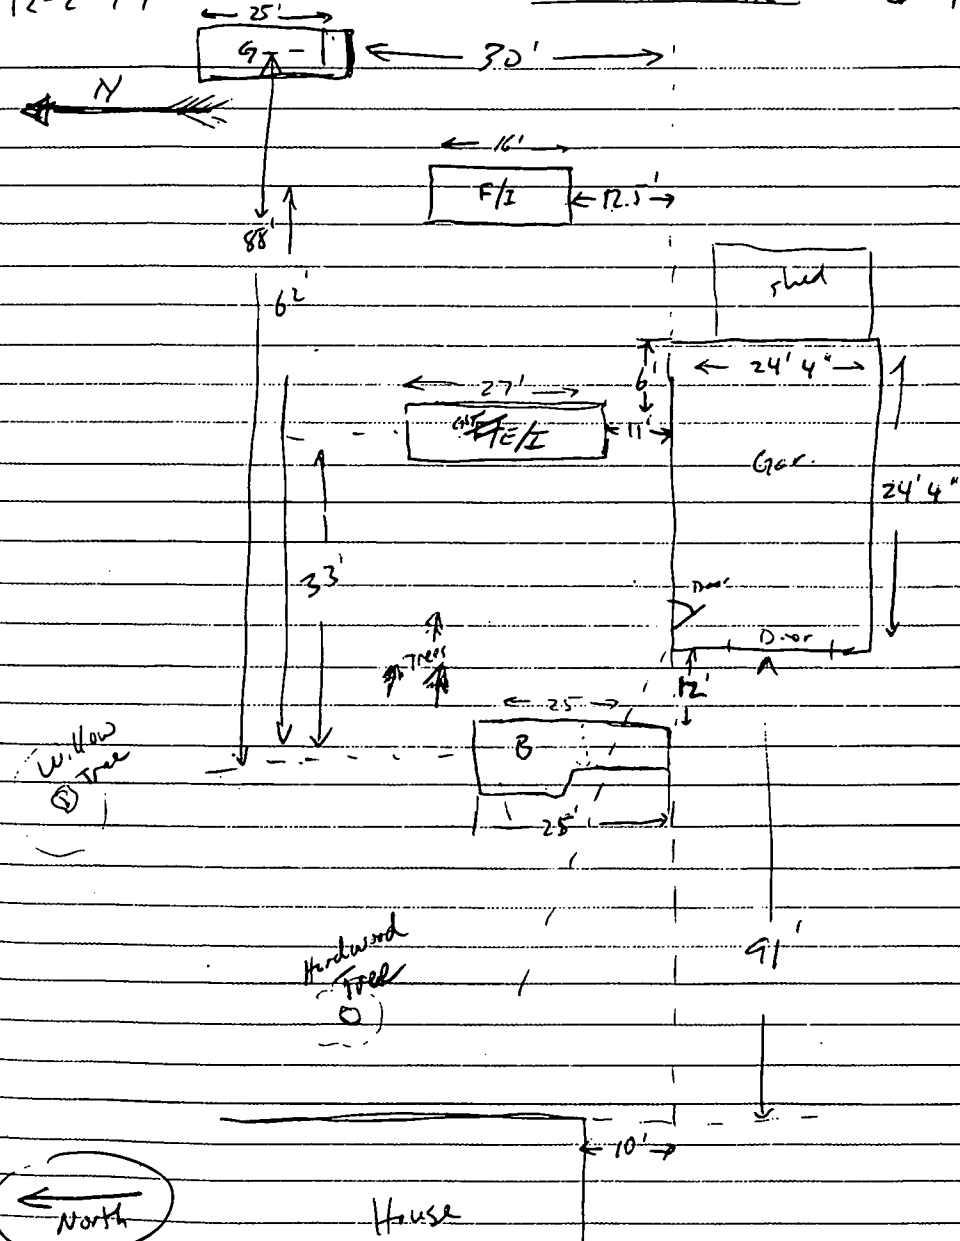 25'
G
30'
N
16'
F/I
12.5'
88'
62'
shed
6'
24' 4"
27'
E/I
11'
Gar.
24' 4"
33'
Door
Door
A
Trees
12'
25
B
Willow
Tree
25'
91'
Hardwood
Tree
10'
North
House